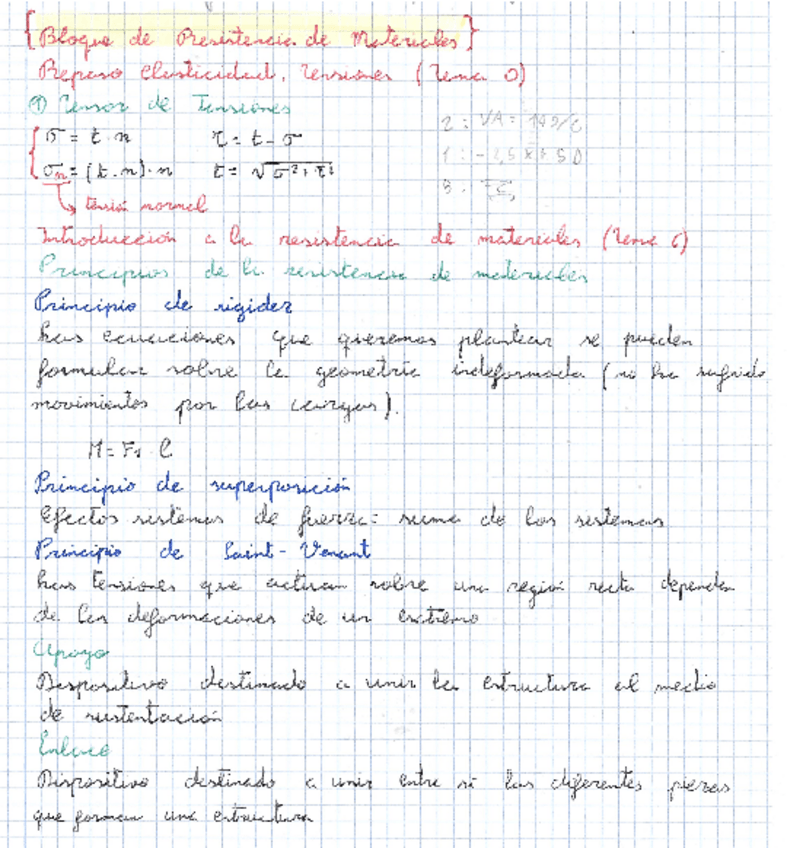 {Bloque de Resistencia de Materiales}
Repaso Elasticidad. Tensiones (Tema 0)
① Tensor de Tensiones
σ = t · n τ = t - σ
σn = (t · n) · n t = √σ² + τ²
↳ tensión normal
Introducción a la resistencia de materiales (Tema 6)
Principios de la resistencia de materiales
Principio de rigidez
Las ecuaciones que queremos plantear se pueden
formular sobre la geometría indeformada (no ha sufrido
movimientos por las cargas).
M = F1 · l
Principio de superposición
Efectos sistemas de fuerza = suma de los sistemas
Principio de Saint-Venant
Las tensiones que actúan sobre una región recta depende
de las deformaciones de un extremo
Apoyo
Dispositivo destinado a unir la estructura al medio
de sustentación
Enlace
Dispositivo destinado a unir entre sí las diferentes piezas
que forman una estructura